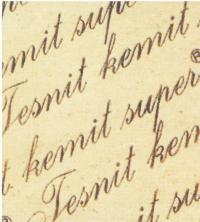 mit super
Tesnit kemit s
t kemit super®
Tesnit kem
it su